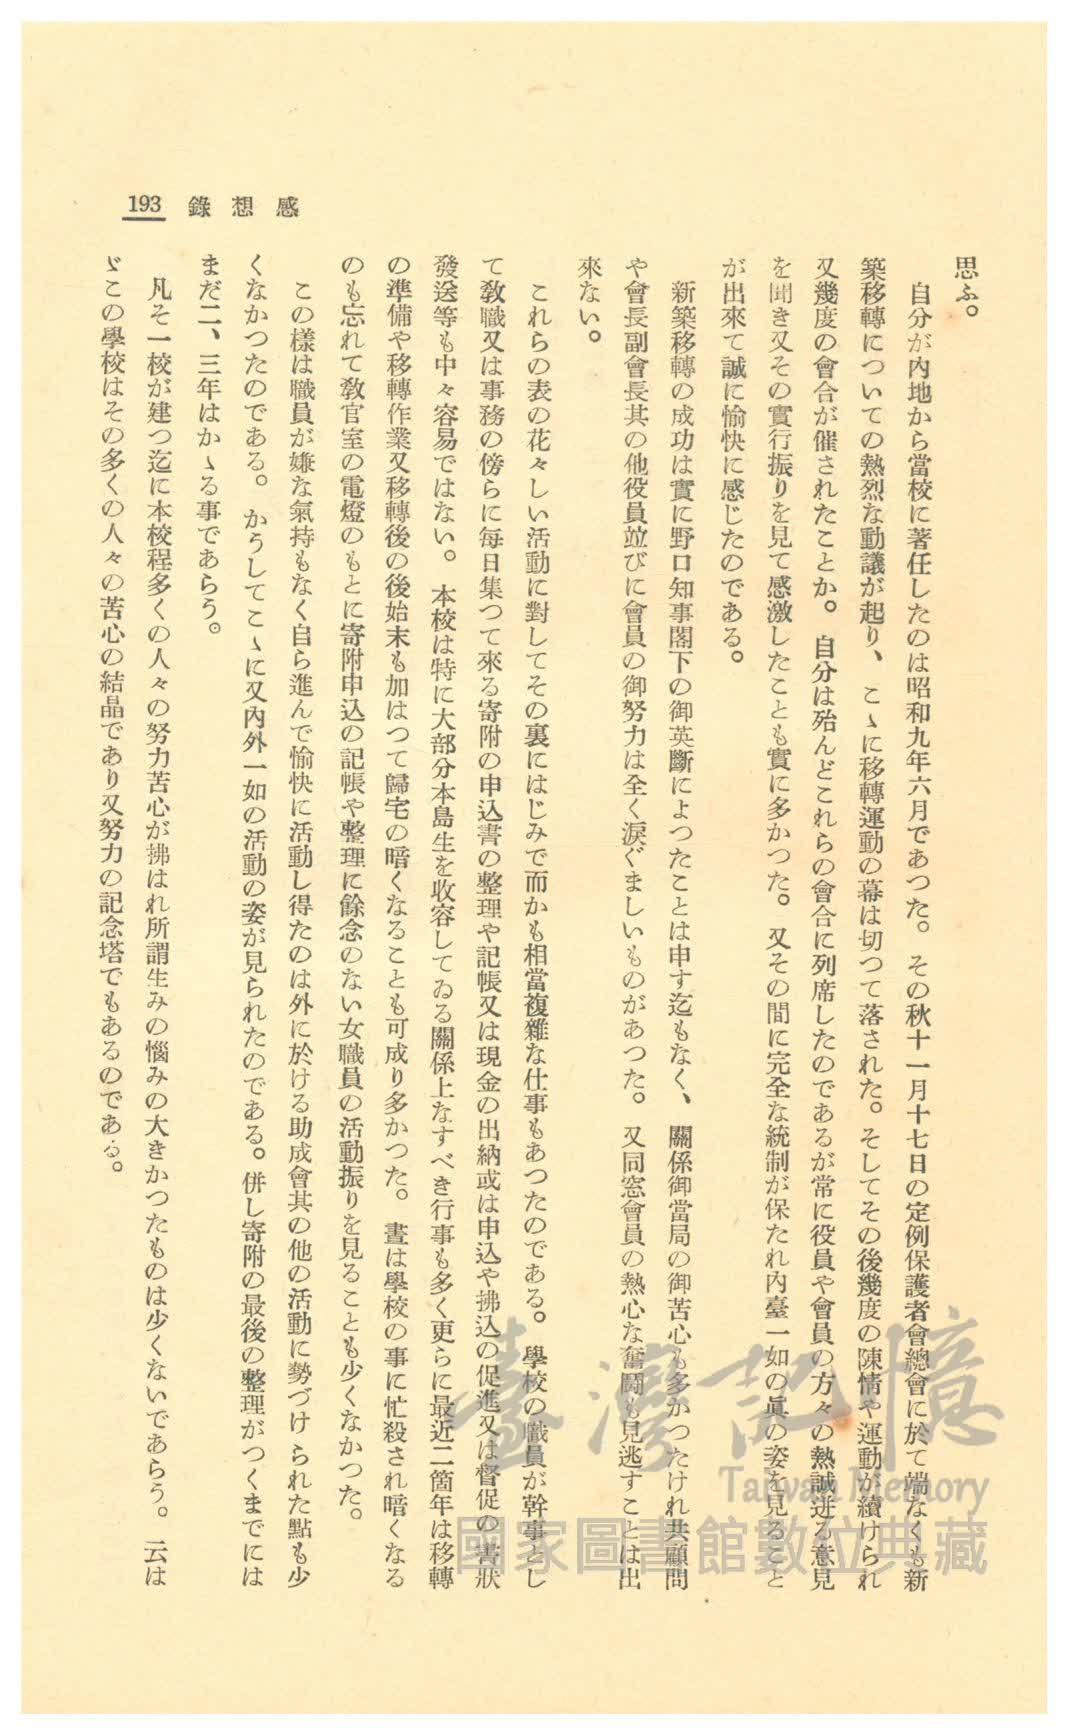 193 錄想感
思ふ。
自分が内地から當校に著任したのは昭和九年六月であつた。その秋十一月十七日の定例保護者會總會に於て端なくも新
築移轉についての熱烈な動議が起り、こゝに移轉運動の幕は切つて落された。そしてその後幾度の陳情や運動が續けられ
又幾度の會合が催されたことか。自分は殆んどこれらの會合に列席したのであるが常に役員や會員の方々の熱誠迸る意見
を聞き又その實行振りを見て感激したことも實に多かつた。又その間に完全な統制が保たれ内臺一如の眞の姿を見ること
が出來て誠に愉快に感じたのである。
新築移轉の成功は實に野口知事閣下の御英斷によつたことは申す迄もなく、關係御當局の御苦心も多かつたけれ共顧問
や會長副會長其の他役員竝びに會員の御努力は全く涙ぐましいものがあつた。又同窓會員の熱心な奮鬪も見逃すことは出
來ない。
これらの表の花々しい活動に對してその裏にはじみで而かも相當複雜な仕事もあつたのである。學校の職員が幹事とし
て敎職又は事務の傍らに毎日集つて來る寄附の申込書の整理や記帳又は現金の出納或は申込や拂込の促進又は督促の書狀
發送等も中々容易ではない。本校は特に大部分本島生を收容してゐる關係上なすべき行事も多く更らに最近二箇年は移轉
の準備や移轉作業又移轉後の後始末も加はつて歸宅の暗くなることも可成り多かつた。晝は學校の事に忙殺され暗くなる
のも忘れて敎官室の電燈のもとに寄附申込の記帳や整理に餘念のない女職員の活動振りを見ることも少くなかつた。
この樣は職員が嫌な氣持もなく自ら進んで愉快に活動し得たのは外に於ける助成會其の他の活動に勢づけられた點も少
くなかつたのである。かうしてこゝに又内外一如の活動の姿が見られたのである。併し寄附の最後の整理がつくまでには
まだ二、三年はかゝる事であらう。
凡そ一校が建つ迄に本校程多くの人々の努力苦心が拂はれ所謂生みの惱みの大きかつたものは少くないであらう。云は
ゞこの學校はその多くの人々の苦心の結晶であり又努力の記念塔でもあるのである。
臺灣記憶
Taiwan Memory
國家圖書館數位典藏